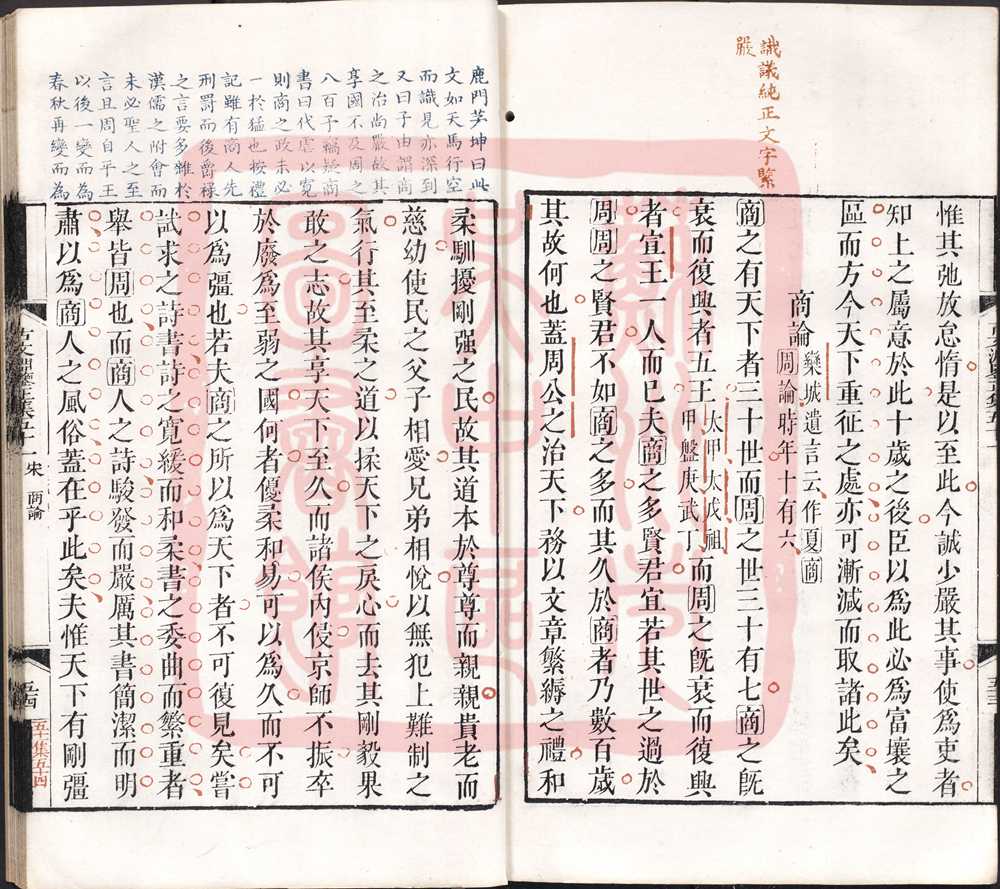 識議純正文字緊
嚴
惟其弛放怠惰是以至此今誠少嚴其事使爲吏者
知上之屬意於此十歲之後臣以爲此必爲富壤之
區而方今天下重征之處亦可漸減而取諸此矣
商論
欒城遺言云作夏商
周論時年十有六
商之有天下者三十世而周之世三十有七商之旣
衰而復興者五王
太甲太戊祖
甲盤庚武丁
而周之旣衰而復興
者宣王一人而已夫商之多賢君宜若其世之過於
周周之賢君不如商之多而其久於商者乃數百歲
其故何也蓋周公之治天下務以文章繁縟之禮和
鹿門茅坤曰此
文如天馬行空
而識見亦深到
又曰子由謂商
之治尚嚴故其
享國不及周之
八百予竊疑商
書曰代虐以寬
則商之政未必
一於猛也按禮
記雖有商人先
刑罰而後爵祿
之言要多雖於
漢儒之附會而
未必聖人之至
言且周自平王
以後一變而為
春秋再變而為
柔馴擾剛强之民故其道本於尊尊而親親貴老而
慈幼使民之父子相愛兄弟相悅以無犯上難制之
氣行其至柔之道以揉天下之戾心而去其剛毅果
敢之志故其享天下至久而諸侯內侵京師不振卒
於廢爲至弱之國何者優柔和易可以爲久而不可
以爲彊也若夫商之所以爲天下者不可復見矣嘗
試求之詩書詩之寬緩而和柔書之委曲而繁重者
舉皆周也而商人之詩駿發而嚴厲其書簡潔而明
肅以爲商人之風俗蓋在乎此矣夫惟天下有剛彊
宋
商論